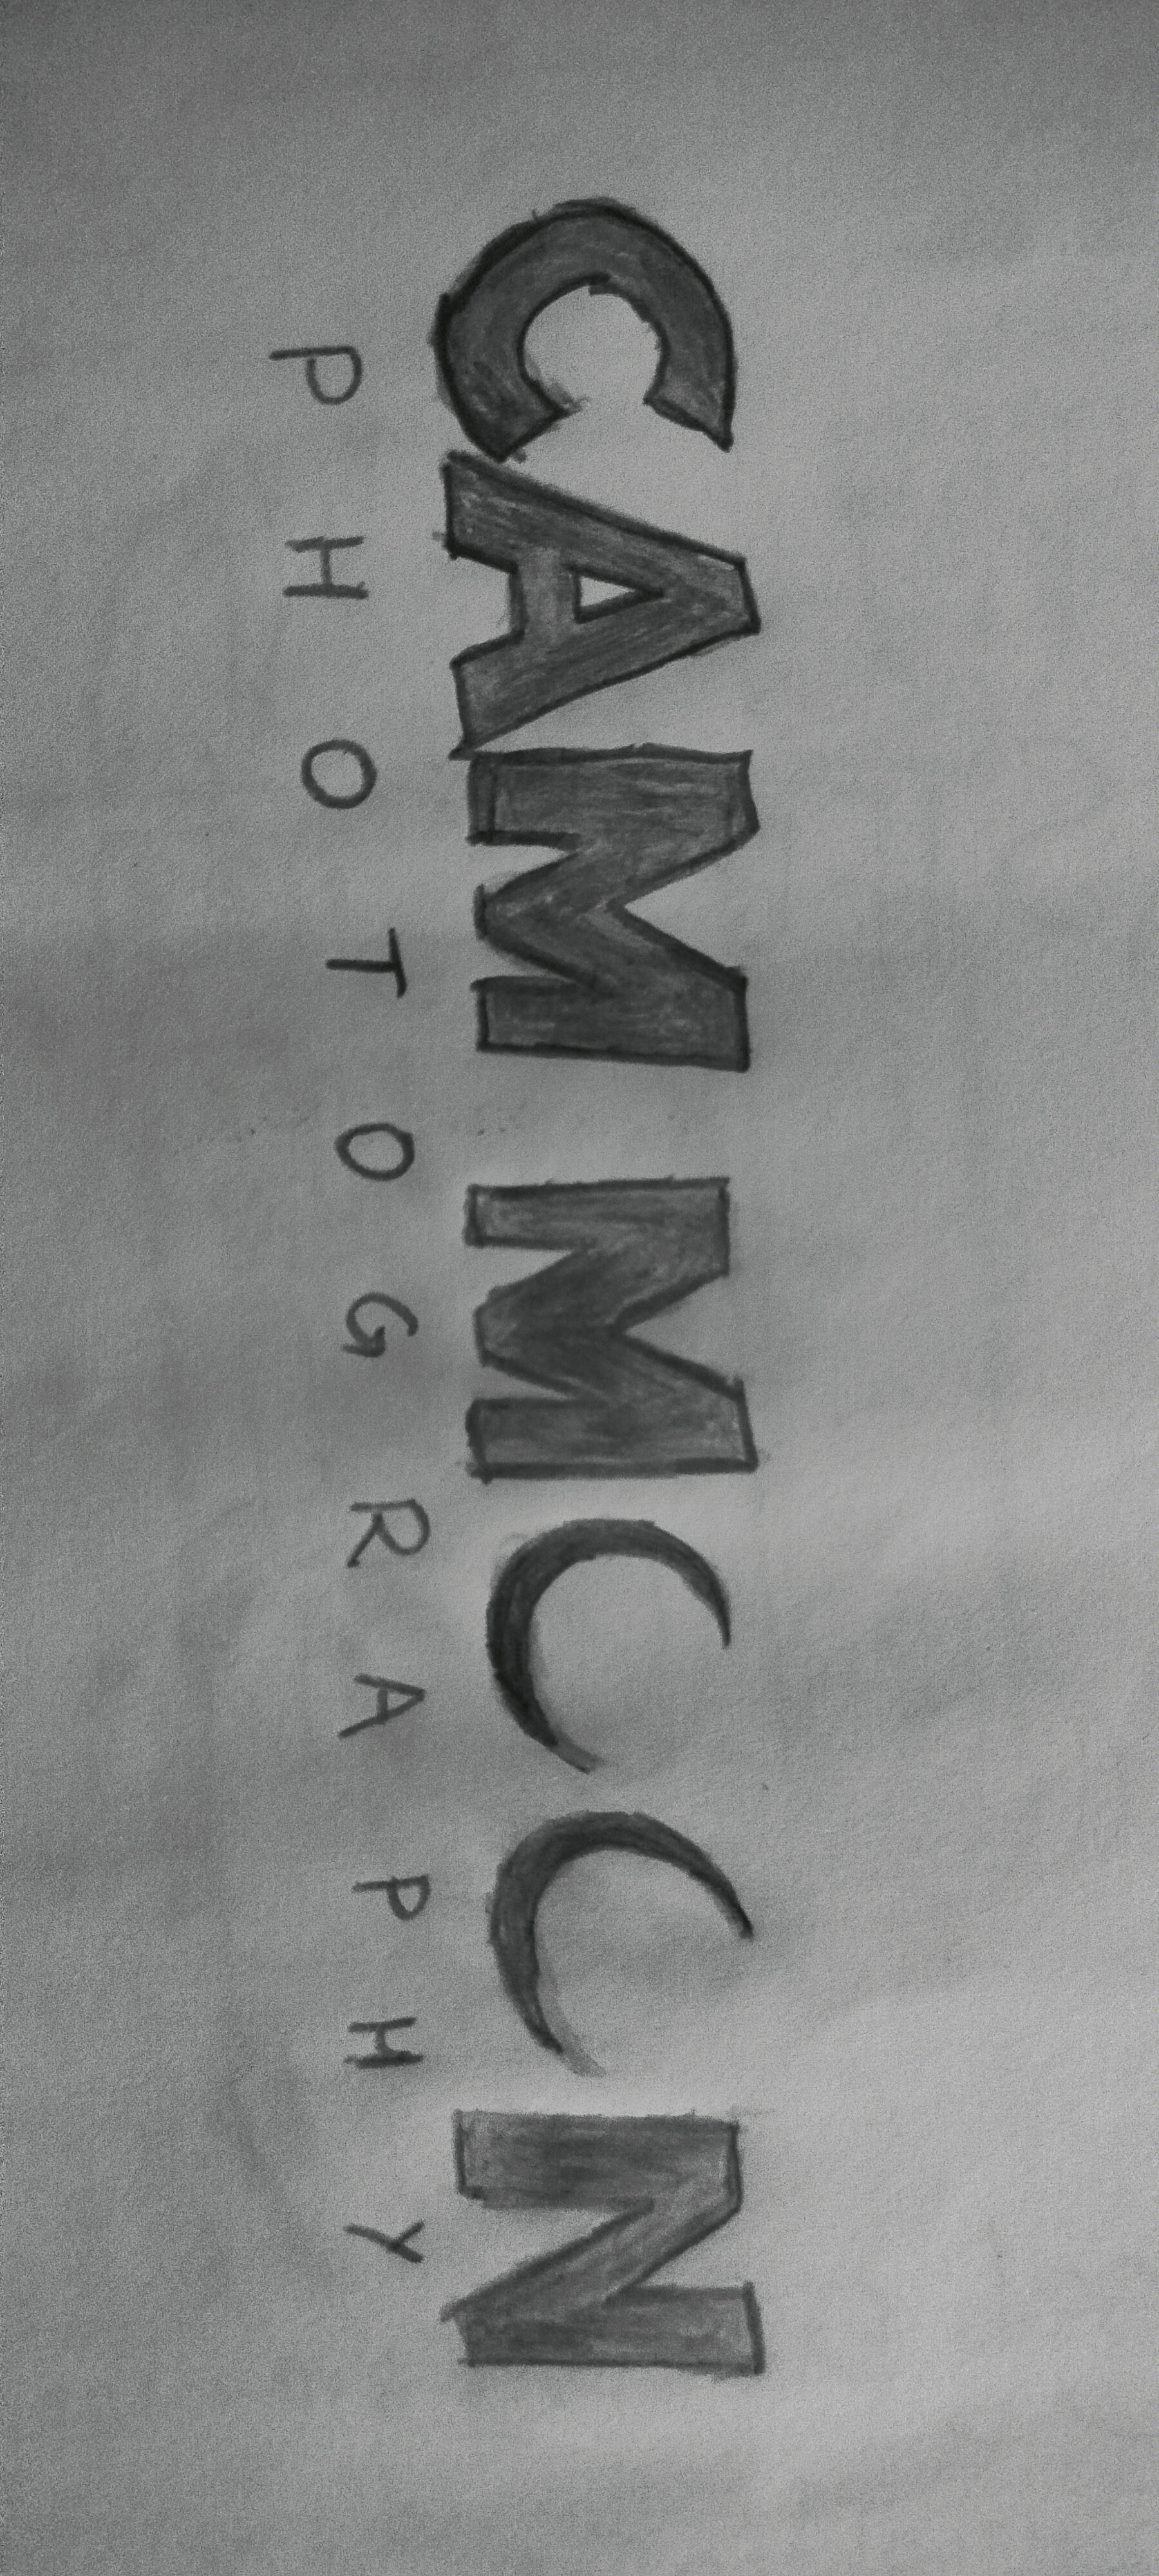 CAM MCCN
PHOTOGRAPHY